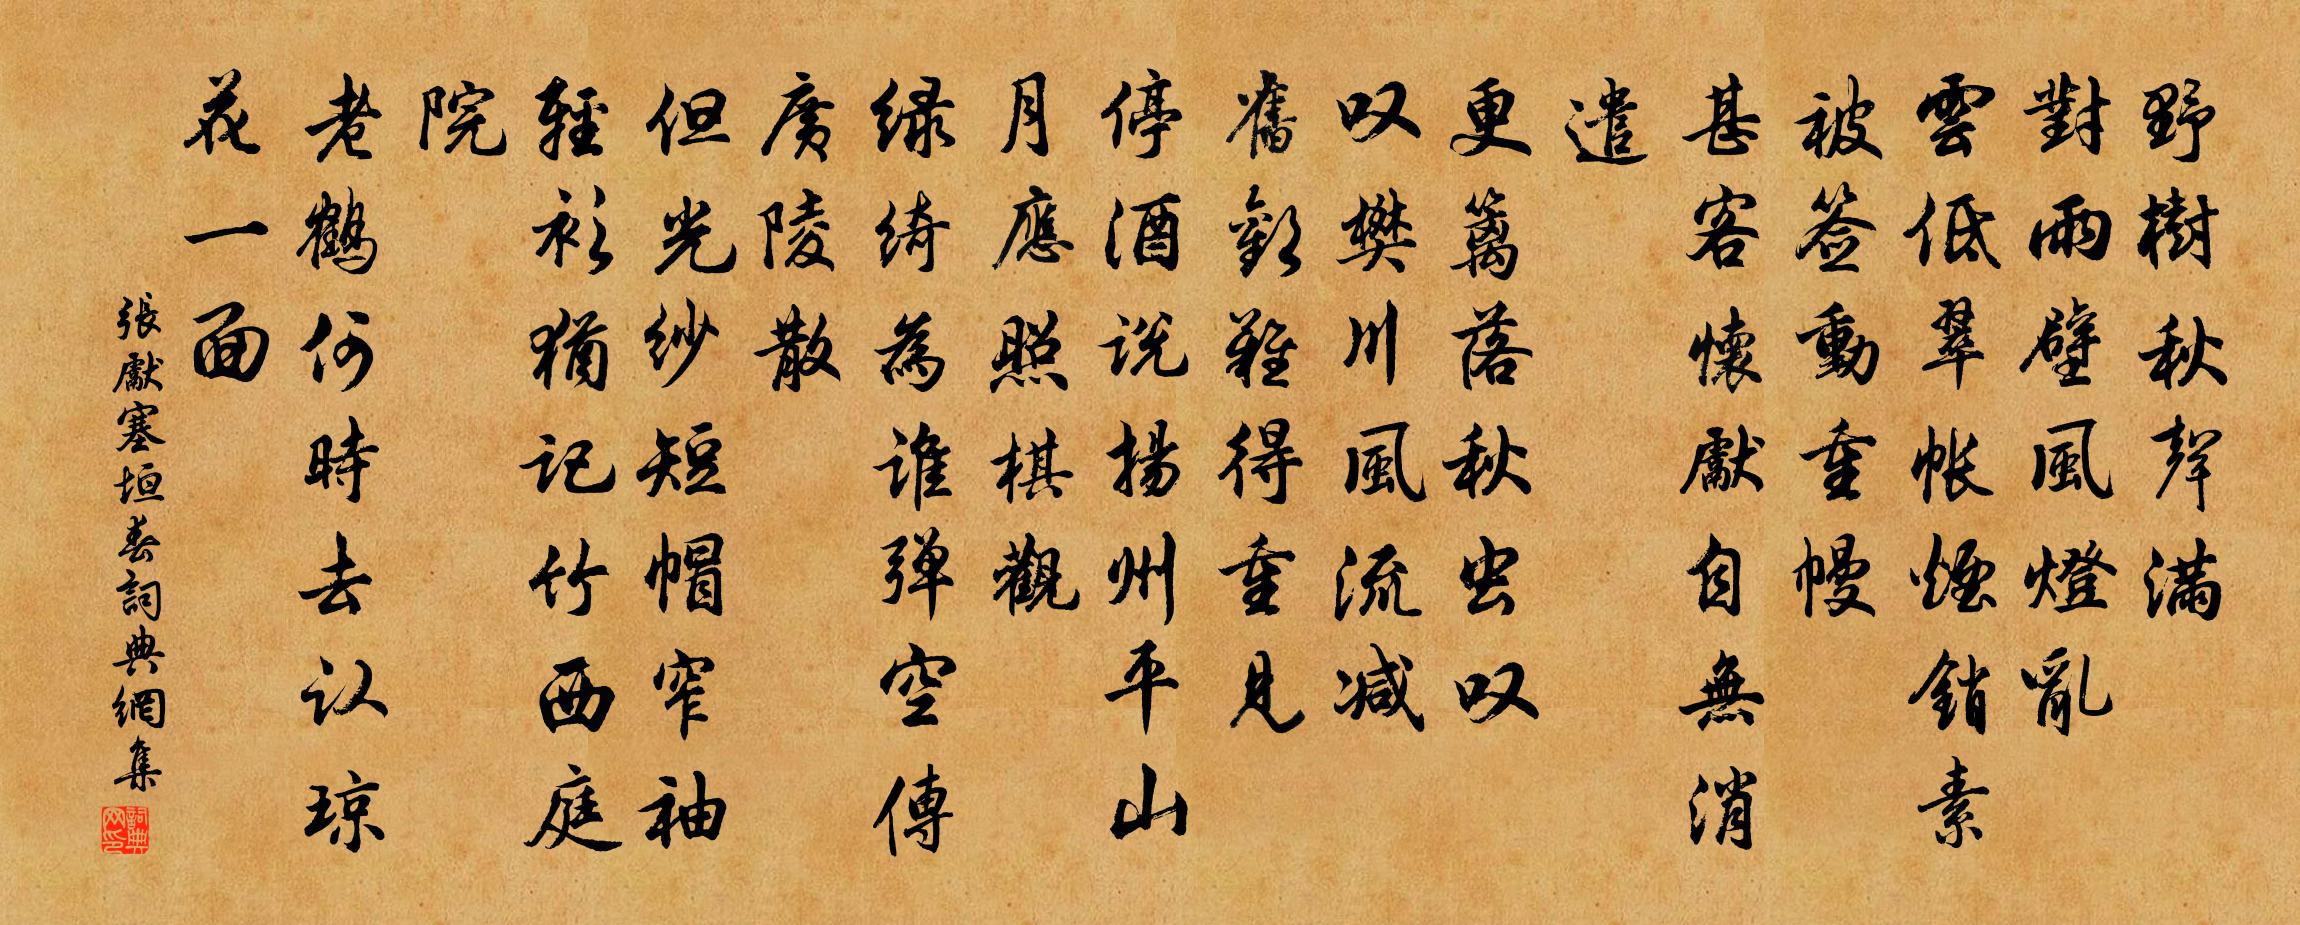 野樹秋聲滿
對雨壁風燈亂
雲低翠帐煙銷素
被签動重幔
甚客懷獻自無消
遣
更篱落秋虫叹
叹樊川風流减
舊歡難得重見
停酒说揚州平山
月應照棋觀
绿綺為谁弹空傳
廣陵散
但光纱短帽窄袖
輕衫猶记竹西庭
院
老鶴何時去认琼
花一面
張獻塞垣春詞典網集
詞典网印